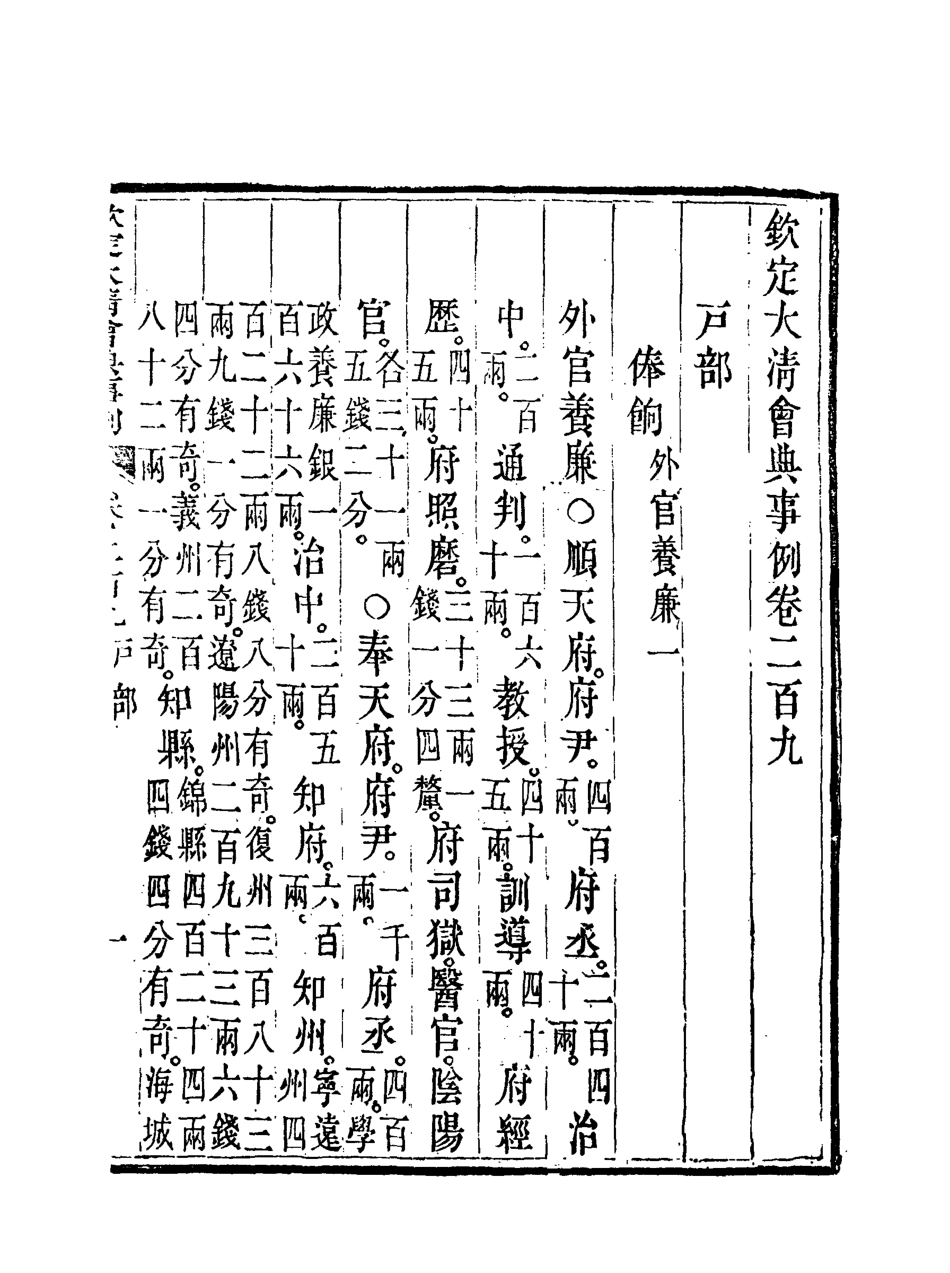 欽定大清會典事例卷二百九
戶部
俸餉外官養廉一
外官養廉○順天府。府尹。四百兩、府丞。二百四十兩。治
中。二百兩。通判。一百六十兩。教授。四十五兩。訓導四十兩。府經
歷。四十五兩。府照磨。三十三兩一錢一分四釐。府司獄。醫官。陰陽
官。各三十一兩五錢二分。○奉天府。府尹。一千兩、府丞。四百兩。學
政養廉銀一百六十六兩。治中。二百五十兩。知府。六百兩、知州。寧遠州四
百二十二兩八錢八分有奇。復州三百八十三
兩九錢一分有奇。遼陽州二百九十三兩六錢
四分有奇。義州二百八十二兩一分有奇。知縣。錦縣四百二十四兩四錢四分有奇。海城
欽定大清會典事例 戶部 一